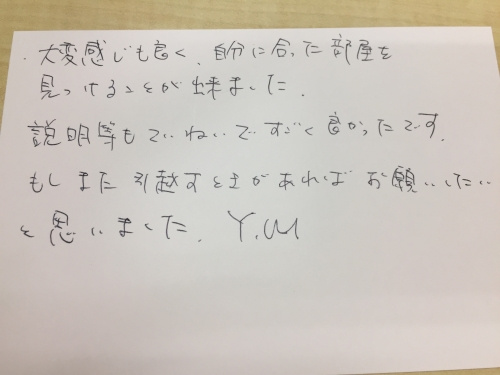 大変感じも良く、自分に合った部屋を
見つけることが出来ました。
説明等もていねいですごく良かったです。
もしまた引越すときがあれば お願いしたい
と思いました。 Y.M